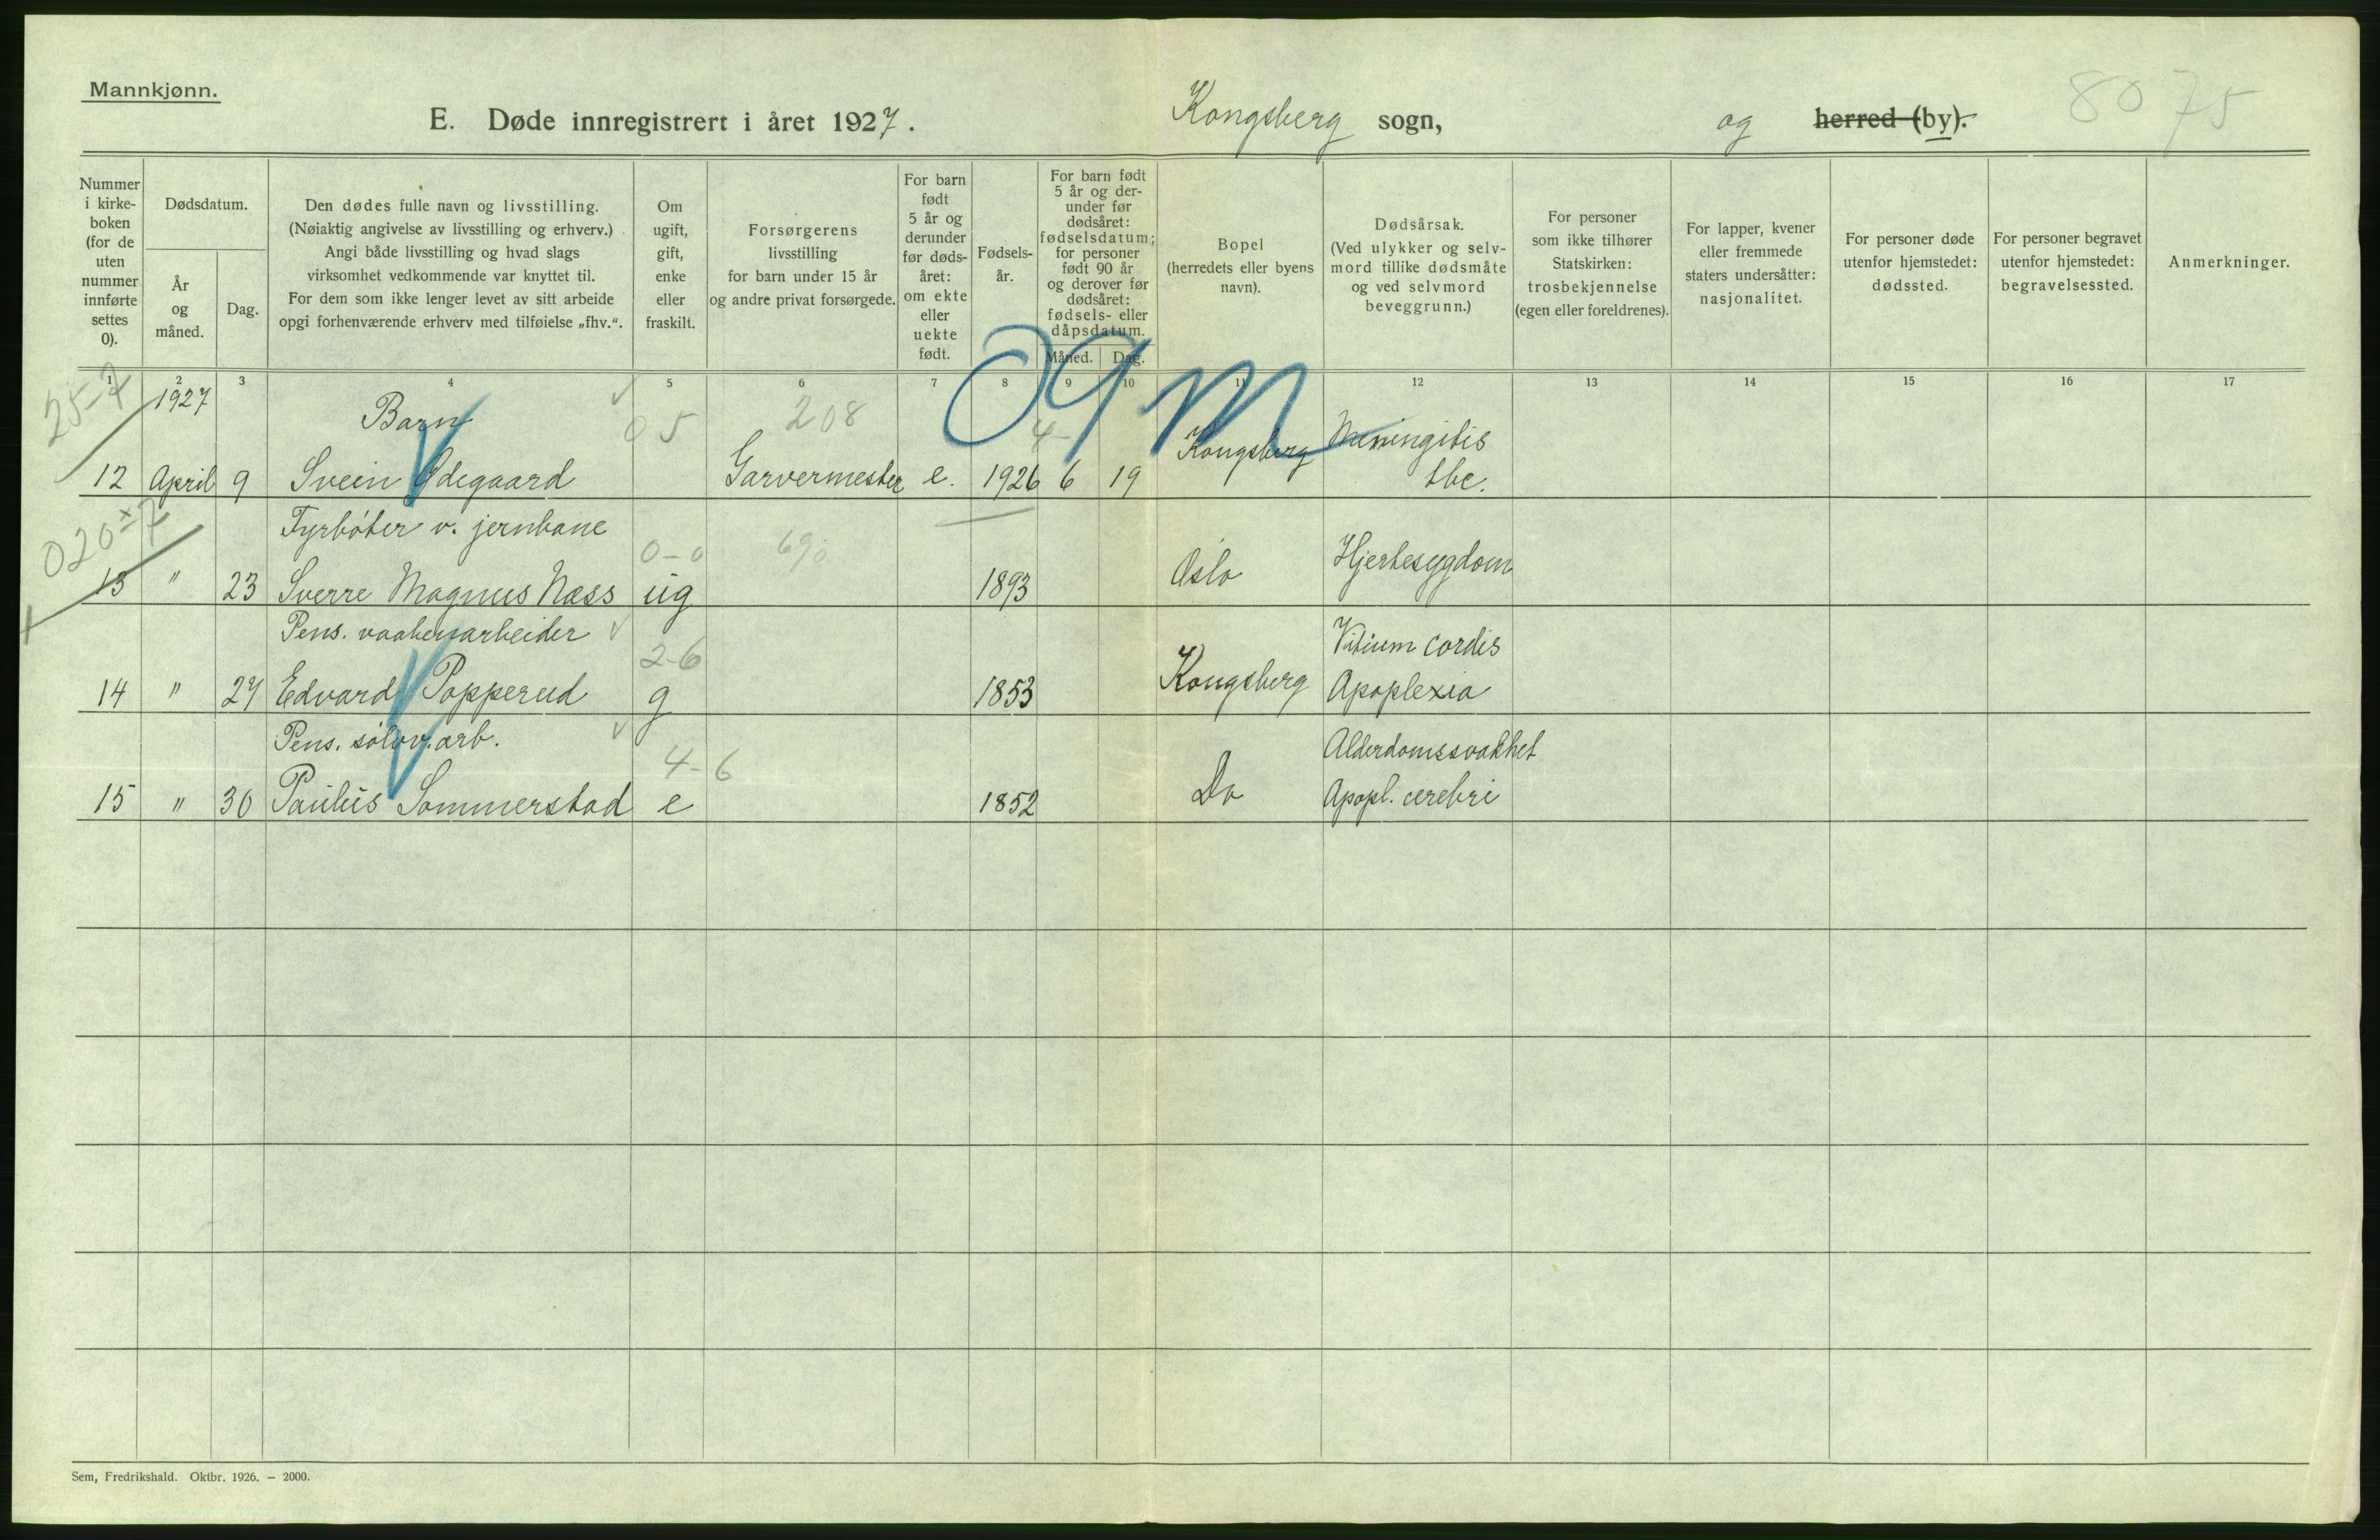 Mannkjønn.
E. Døde innregistrert i året 1927.
Kongsberg sogn,
og herred (by).
80 75
Nummer i kirke-boken (for de uten nummer innførte settes 0).
Dødsdatum.
År og måned.
Dag.
Den dødes fulle navn og livsstilling.
(Nøiaktig angivelse av livsstilling og erhverv.)
Angi både livsstilling og hvad slags
virksomhet vedkommende var knyttet til.
For dem som ikke lenger levet av sitt arbeide
opgi forhenværende erhverv med tilføielse „fhv.“.
Om ugift, gift, enke eller fraskilt.
Forsørgerens
livsstilling
for barn under 15 år
og andre privat forsørgede.
For barn født 5 år og derunder før døds-året: om ekte eller uekte født.
Fødsels-år.
For barn født 5 år og der-under før dødsåret: fødselsdatum; for personer født 90 år og derover før dødsåret: fødsels- eller dåpsdatum.
Måned. Dag.
Bopel
(herredets eller byens
navn).
Dødsårsak.
(Ved ulykker og selv-
mord tillike dødsmåte
og ved selvmord
beveggrunn.)
For personer
som ikke tilhører
Statskirken:
trosbekjennelse
(egen eller foreldrenes).
For lapper, kvener
eller fremmede
staters undersåtter:
nasjonalitet.
For personer døde
utenfor hjemstedet:
dødssted.
For personer begravet
utenfor hjemstedet:
begravelsessted.
Anmerkninger.
1 2 3 4 5 6 7 8 9 10 11 12 13 14 15 16 17
09 M
25-7 1927 Barn 05 208 4- Meningitis
12 April 9 Svein Ødegaard Garvermester e. 1926 6 19 Kongsberg tbc.
020±7 Fyrbøter v. jernbane 0-0 690
13 " 23 Sverre Magnus Næss ug 1893 Oslo Hjertesygdom
Pens. vaabenarbeider 2-6 Vitium cordis
14 " 27 Edvard Popperud g 1853 Kongsberg Apoplexia
Pens. sølvv. arb. 4-6 Alderdomssvakhet
15 " 30 Paulus Sommerstad e 1852 Do Apopl. cerebri
Sem, Fredrikshald. Oktbr. 1926. – 2000.